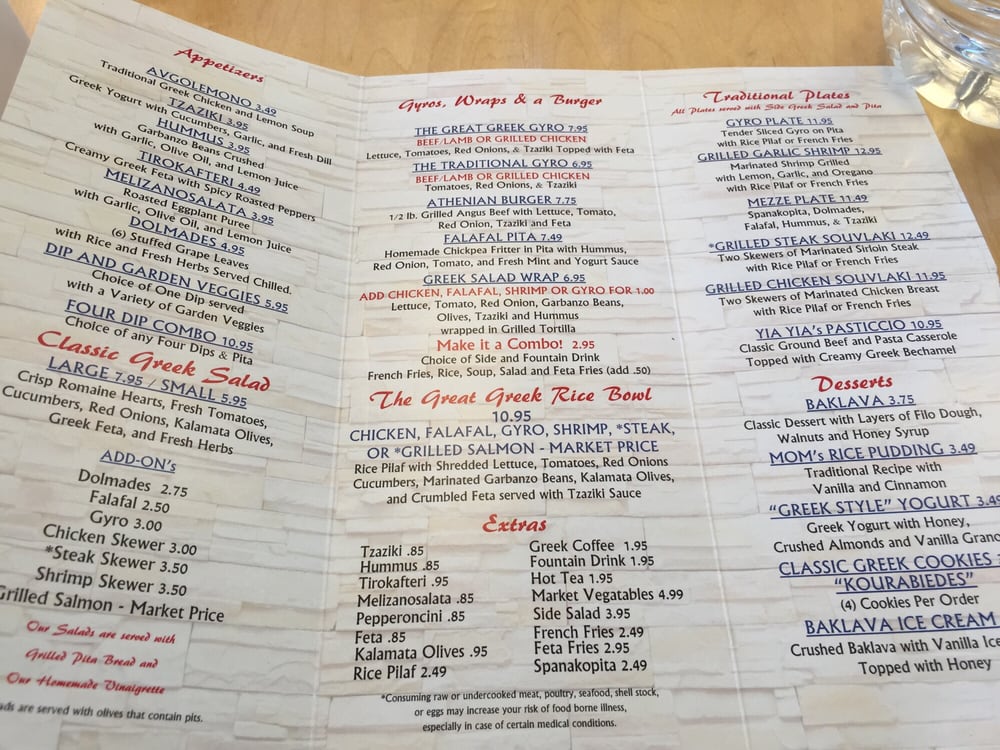 Appetizers
AVGOLEMONO 3.49
Traditional Greek Chicken and Lemon Soup
TZAZIKI 3.95
Greek Yogurt with Cucumbers, Garlic, and Fresh Dill
HUMMUS 3.95
Garbanzo Beans Crushed
with Garlic, Olive Oil, and Lemon Juice
TIROKAFTERI 4.49
Creamy Greek Feta with Spicy Roasted Peppers
MELIZANOSALATA 3.95
Roasted Eggplant Puree
with Garlic, Olive Oil, and Lemon Juice
DOLMADES 4.95
(6) Stuffed Grape Leaves
with Rice and Fresh Herbs Served Chilled.
DIP AND GARDEN VEGGIES 5.95
Choice of One Dip served
with a Variety of Garden Veggies
FOUR DIP COMBO 10.95
Choice of any Four Dips & Pita
Classic Greek Salad
LARGE 7.95 / SMALL 5.95
Crisp Romaine Hearts, Fresh Tomatoes,
Cucumbers, Red Onions, Kalamata Olives,
Greek Feta, and Fresh Herbs
ADD-ON's
Dolmades 2.75
Falafal 2.50
Gyro 3.00
Chicken Skewer 3.00
*Steak Skewer 3.50
Shrimp Skewer 3.50
Grilled Salmon - Market Price
Our Salads are served with
Grilled Pita Bread and
Our Homemade Vinaigrette
are served with olives that contain pits.
Gyros, Wraps & a Burger
THE GREAT GREEK GYRO 7.95
BEEF/LAMB OR GRILLED CHICKEN
Lettuce, Tomatoes, Red Onions, & Tzaziki Topped with Feta
THE TRADITIONAL GYRO 6.95
BEEF/LAMB OR GRILLED CHICKEN
Tomatoes, Red Onions, & Tzaziki
ATHENIAN BURGER 7.75
1/2 lb. Grilled Angus Beef with Lettuce, Tomato,
Red Onion, Tzaziki and Feta
FALAFAL PITA 7.49
Homemade Chickpea Fritter in Pita with Hummus,
Red Onion, Tomato, and Fresh Mint and Yogurt Sauce
GREEK SALAD WRAP 6.95
ADD CHICKEN, FALAFAL, SHRIMP OR GYRO FOR 1.00
Lettuce, Tomato, Red Onion, Garbanzo Beans,
Olives, Tzaziki and Hummus
wrapped in Grilled Tortilla
Make it a Combo! 2.95
Choice of Side and Fountain Drink
French Fries, Rice, Soup, Salad and Feta Fries (add .50)
The Great Greek Rice Bowl
10.95
CHICKEN, FALAFAL, GYRO, SHRIMP, *STEAK,
OR *GRILLED SALMON - MARKET PRICE
Rice Pilaf with Shredded Lettuce, Tomatoes, Red Onions
Cucumbers, Marinated Garbanzo Beans, Kalamata Olives,
and Crumbled Feta served with Tzaziki Sauce
Extras
Tzaziki .85
Hummus .85
Tirokafteri .95
Melizanosalata .85
Pepperoncini .85
Feta .85
Kalamata Olives .95
Rice Pilaf 2.49
Greek Coffee 1.95
Fountain Drink 1.95
Hot Tea 1.95
Market Vegatables 4.99
Side Salad 3.95
French Fries 2.49
Feta Fries 2.95
Spanakopita 2.49
*Consuming raw or undercooked meat, poultry, seafood, shell stock,
or eggs may increase your risk of food borne illness,
especially in case of certain medical conditions.
Traditional Plates
All Plates served with Side Greek Salad and Pita
GYRO PLATE 11.95
Tender Sliced Gyro on Pita
with Rice Pilaf or French Fries
GRILLED GARLIC SHRIMP 12.95
Marinated Shrimp Grilled
with Lemon, Garlic, and Oregano
with Rice Pilaf or French Fries
MEZZE PLATE 11.49
Spanakopita, Dolmades,
Falafal, Hummus, & Tzaziki
*GRILLED STEAK SOUVLAKI 12.49
Two Skewers of Marinated Sirloin Steak
with Rice Pilaf or French Fries
GRILLED CHICKEN SOUVLAKI 11.95
Two Skewers of Marinated Chicken Breast
with Rice Pilaf or French Fries
YIA YIA's PASTICCIO 10.95
Classic Ground Beef and Pasta Casserole
Topped with Creamy Greek Bechamel
Desserts
BAKLAVA 3.75
Classic Dessert with Layers of Filo Dough,
Walnuts and Honey Syrup
MOM's RICE PUDDING 3.49
Traditional Recipe with
Vanilla and Cinnamon
"GREEK STYLE" YOGURT 3.49
Greek Yogurt with Honey,
Crushed Almonds and Vanilla
CLASSIC GREEK COOKIES
"KOURABIEDES"
(4) Cookies Per Order
BAKLAVA ICE CREAM
Crushed Baklava with Vanilla Ice
Topped with Honey